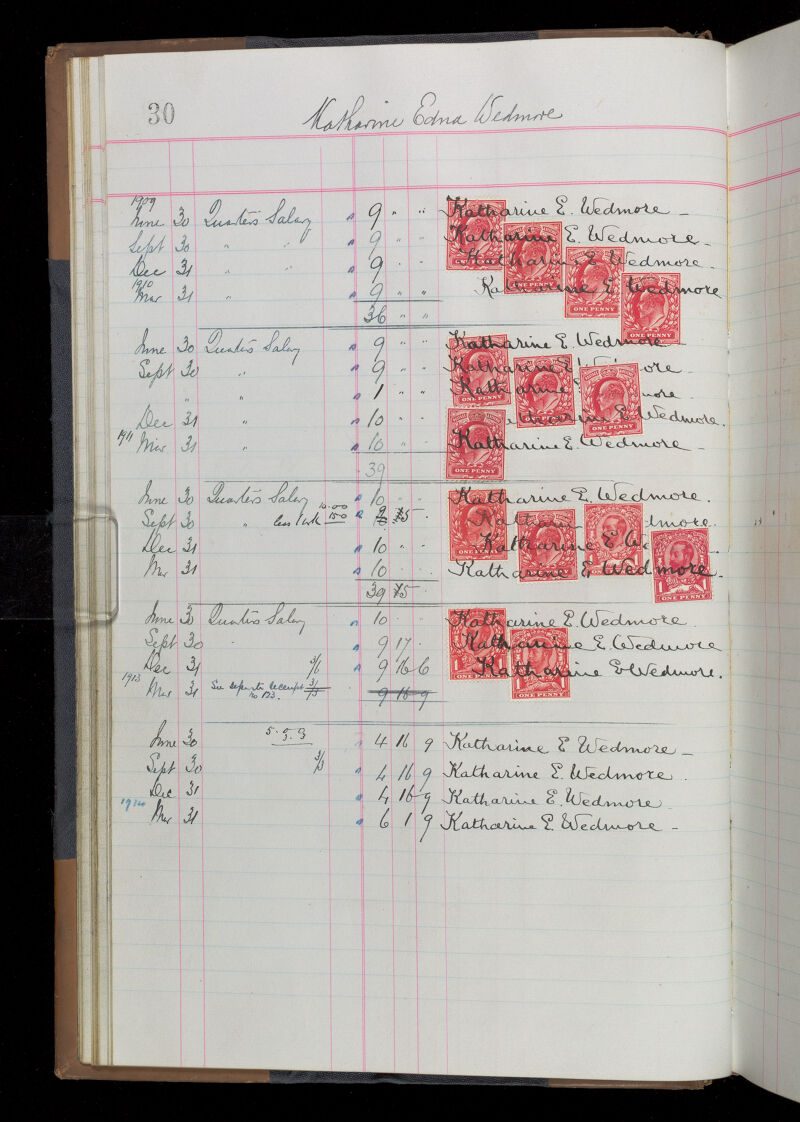 30
Katharine Edna Wedmore
1909
June 30 Quarters Salary 9 " " Katharine E. Wedmore -
Sept 30 " " 9 " " Katharine E. Wedmore -
Dec 31 " " 9 " " Katharine E Wedmore -
1910
Mar 31 " 9 " " Katharine E. Wedmore
36 " "
June 30 Quarters Salary 9 " " Katharine E. Wedmore -
Sept 30 " 9 " " Katharine E. ore -
" " 1 " " Katharine ore
Dec 31 " 10 " " Katharine E. Wedmore.
1911 Mar 31 " 10 " " Katharine E. Wedmore -
39
June 30 Quarters Salary 10 " " Katharine E. Wedmore.
Sept 30 " less 1 wk 10.0.0 15.0 9 5 Katharin dmore.
Dec 31 10 " " Katharine E We
Mar 31 10 " " Katharine E Wedmore.
39 5
June 30 Quarters Salary 10 Katharine E. Wedmore.
Sept 30 9 17 Katharine E. Wedmore
Dec 31 3/6 9 16 6 Katharine E Wedmore.
1913
Mar 31 See separate receipt 3/3 9 16 9
no 123.
June 30 5.5.3 4 16 9 Katharine E Wedmore -
Sept 30 3/3 4 16 9 Katharine E. Wedmore.
Dec 31 4 16 9 Katharine E. Wedmore.
1914
Mar 31 6 1 9 Katharine E. Wedmore -
ONE PENNY
ONE PENNY
ONE PENNY
ONE PENNY
ONE PENNY
ONE PENNY
ONE PENNY
ONE PENNY
ONE PENNY
ONE PENNY
1 1
ONE PENNY
1 1
ONE PENNY
1 1
ONE PENNY
1 1
ONE PENNY